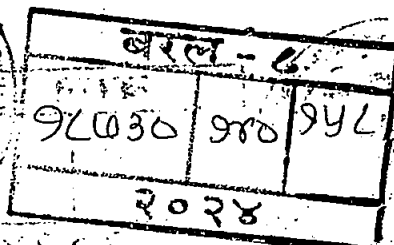 बरल - ८
१८७३० १४० १५८
२०२४